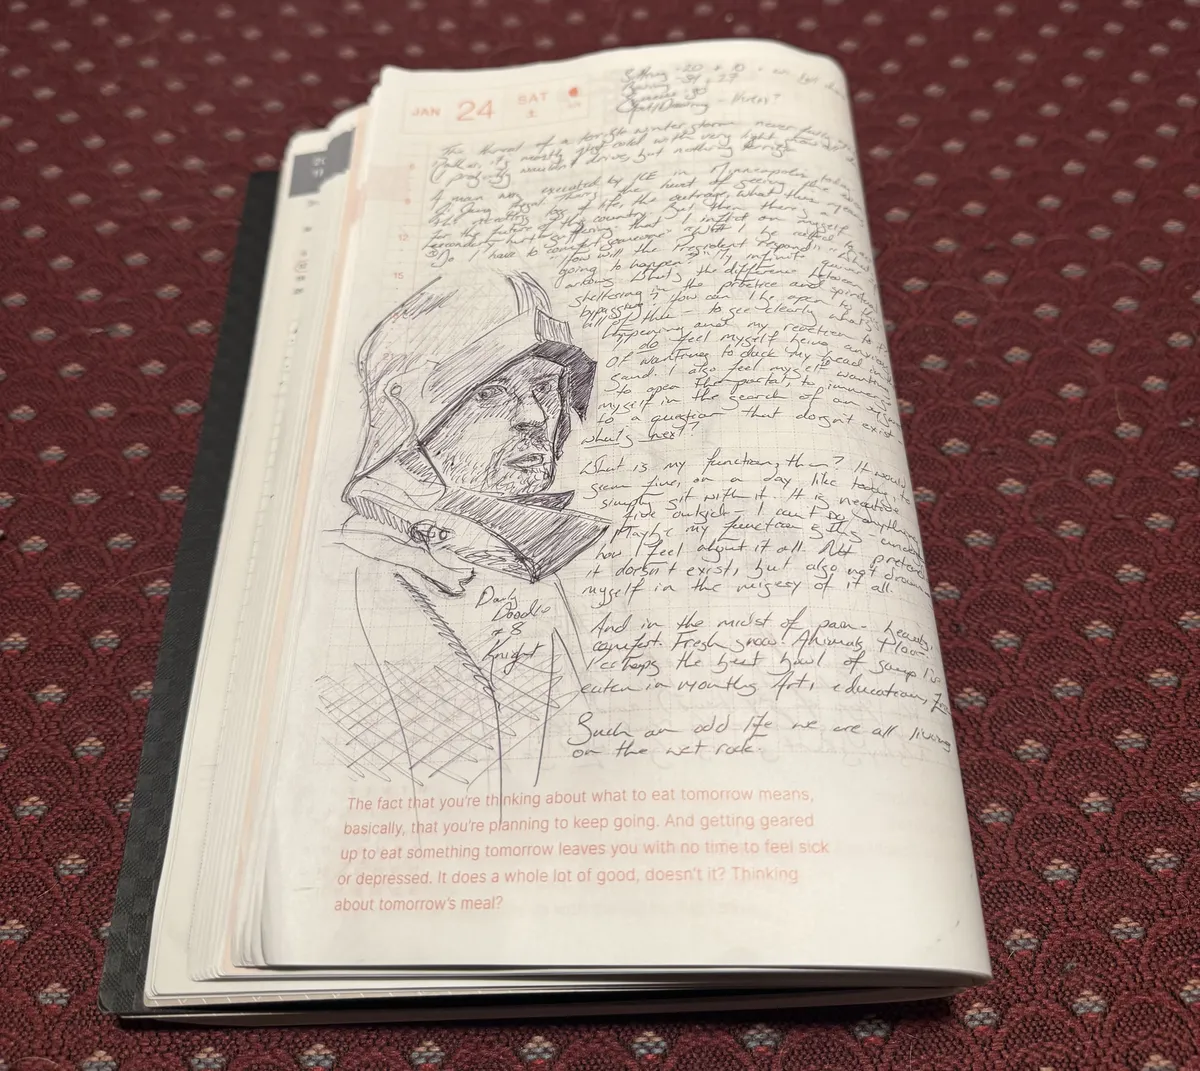 JAN 24 SAT
土
Sitting - 20 + 10
- 30
- Knight
The threat of a terrible winter storm never fully
it's mostly just cold with very light snow
I probably wouldn't drive, but nothing terrible
A man was executed by ICE in Minneapolis today
the hurt of seeing the
the loss of life, the outrage, what this means
for the future of this country. But then there's a
secondary hurt or suffering that I inflict on myself
"Do I have to comfort someone?" "Will I be called
"How will the President respond?"
going to happen?" infinite
What's the difference between
sheltering in the practice and spiritual
bypassing? How can I be open to
all of this - to see clearly what's
happening and my reaction to it
I do feel myself being anxious
of wanting to duck my head in
sand. I also feel myself wanting
to open the portal, to immerse
myself in the search of an
to a question that doesn't exist -
what's next?
What is my function, then? It would
seem fine, on a day like today, to
simply sit with it. It is negative
five outside - I can't do anything
Maybe my function is
how I feel about it all. Not pretend
it doesn't exist, but also not drown
myself in the misery of it all.
And in the midst of pain - beauty,
comfort. Fresh snow. Animals
Perhaps the best bowl of soup I've
eaten in months. Art, education,
Such an odd life we are all living
on the wet rock.
12
15
21
Daily
Doodle
#8
Knight
The fact that you're thinking about what to eat tomorrow means,
basically, that you're planning to keep going. And getting geared
up to eat something tomorrow leaves you with no time to feel sick
or depressed. It does a whole lot of good, doesn't it? Thinking
about tomorrow's meal?